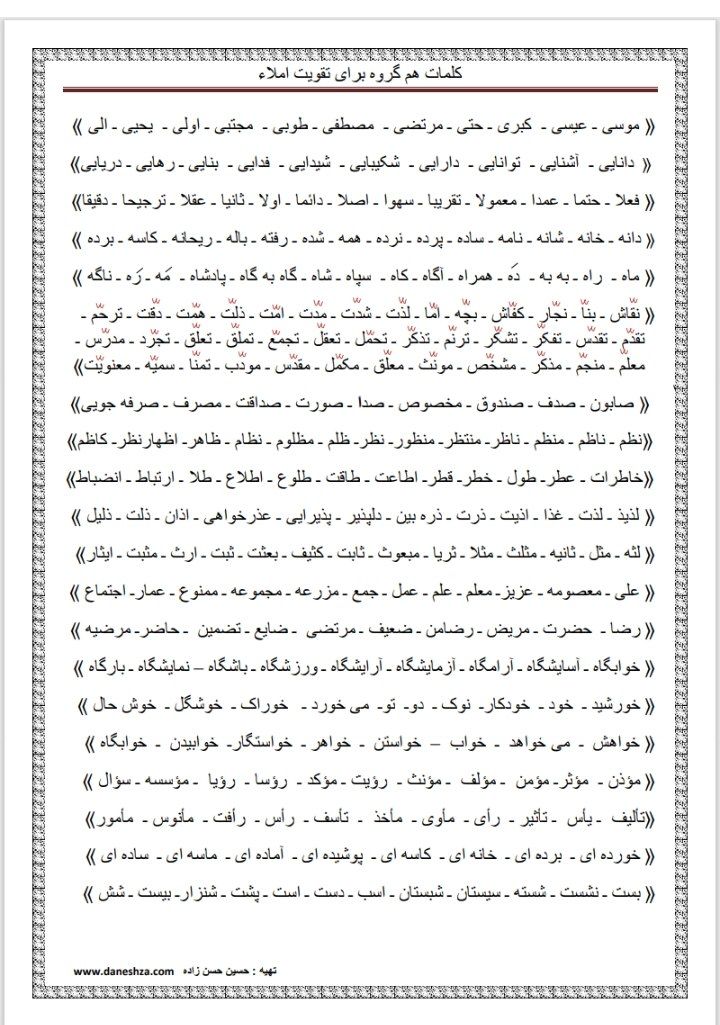 کلمات هم گروه برای تقویت املاء
《 موسی ـ عیسی ـ کبری ـ حتی ـ مرتضی ـ مصطفی ـ طوبی ـ مجتبی ـ اولی ـ یحیی ـ الی 》
《 دانایی ـ آشنایی ـ توانایی ـ دارایی ـ شکیبایی ـ شیدایی ـ فدایی ـ بنایی ـ رهایی ـ دریایی》
《 فعلا ـ حتما ـ عمدا ـ معمولا ـ تقریبا ـ سهوا ـ اصلا ـ دائما ـ اولا ـ ثانیا ـ عقلا ـ ترجیحا ـ دقیقا》
《 دانه ـ خانه ـ شانه ـ نامه ـ ساده ـ پرده ـ نرده ـ همه ـ شده ـ رفته ـ باله ـ ریحانه ـ کاسه ـ برده 》
《 ماه ـ راه ـ به به ـ دَه ـ همراه ـ آگاه ـ کاه ـ سپاه ـ شاه ـ گاه به گاه ـ پادشاه ـ مَه ـ رَه ـ ناگه 》
《 نقّاش ـ بنّا ـ نجّار ـ کفّاش ـ بچّه ـ امّا ـ لذّت ـ شدّت ـ مدّت ـ امّت ـ ذلّت ـ همّت ـ دقّت ـ ترحّم ـ
تقدّم ـ تقدّس ـ تفکّر ـ تشکّر ـ ترنّم ـ تذکّر ـ تحمّل ـ تعقّل ـ تجمّع ـ تملّق ـ تعلّق ـ تجرّد ـ مدرّس ـ
معلّم ـ منجّم ـ مذکّر ـ مشخّص ـ مونّث ـ معلّق ـ مکمّل ـ مقدّس ـ مودّب ـ تمنّا ـ سمیّه ـ معنویّت》
《 صابون ـ صدف ـ صندوق ـ مخصوص ـ صدا ـ صورت ـ صداقت ـ مصرف ـ صرفه جویی》
《نظم ـ ناظم ـ منظم ـ ناظرـ منتظرـ منظورـ نظرـ ظلم ـ مظلوم ـ نظام ـ ظاهرـ اظهارنظرـ کاظم》
《خاطرات ـ عطرـ طول ـ خطرـ قطرـ اطاعت ـ طاقت ـ طلوع ـ اطلاع ـ طلا ـ ارتباط ـ انضباط》
《 لذیذ ـ لذت ـ غذا ـ اذیت ـ ذرت ـ ذره بین ـ دلپذیر ـ پذیرایی ـ عذرخواهی ـ اذان ـ ذلت ـ ذلیل 》
《 لثه ـ مثل ـ ثانیه ـ مثلث ـ مثلا ـ ثریا ـ مبعوث ـ ثابت ـ کثیف ـ بعثت ـ ثبت ـ ارث ـ مثبت ـ ایثار》
《 علی ـ معصومه ـ عزیزـ معلم ـ علم ـ عمل ـ جمع ـ مزرعه ـ مجموعه ـ ممنوع ـ عمارـ اجتماع 》
《 رضا ـ حضرت ـ مریض ـ رضامن ـ ضعیف ـ مرتضی ـ ضایع ـ تضمین ـ حاضرـ مرضیه 》
《 خوابگاه ـ آسایشگاه ـ آرامگاه ـ آزمایشگاه ـ آرایشگاه ـ ورزشگاه ـ باشگاه – نمایشگاه ـ بارگاه 》
《 خورشید ـ خود ـ خودکارـ نوک ـ دوـ توـ می خورد ـ خوراک ـ خوشگل ـ خوش حال 》
《 خواهش ـ می خواهد ـ خواب – خواستن ـ خواهر ـ خواستگارـ خوابیدن ـ خوابگاه 》
《 مؤذن ـ مؤثرـ مؤمن ـ مؤلف ـ مؤنث ـ رؤیت ـ مؤکد ـ رؤسا ـ رؤیا ـ مؤسسه ـ سؤال 》
《تألیف ـ یأس ـ تأثیر ـ رأی ـ مأوی ـ مأخذ ـ تأسف ـ رأس ـ رأفت ـ مأنوس ـ مأمور》
《 خورده ای ـ برده ای ـ خانه ای ـ کاسه ای ـ پوشیده ای ـ آماده ای ـ ماسه ای ـ ساده ای 》
《 بست ـ نشست ـ شسته ـ سیستان ـ شبستان ـ اسب ـ دست ـ است ـ پشت ـ شنزارـ بیست ـ شش 》
تهیه : حسین حسن زاده www.daneshza.com